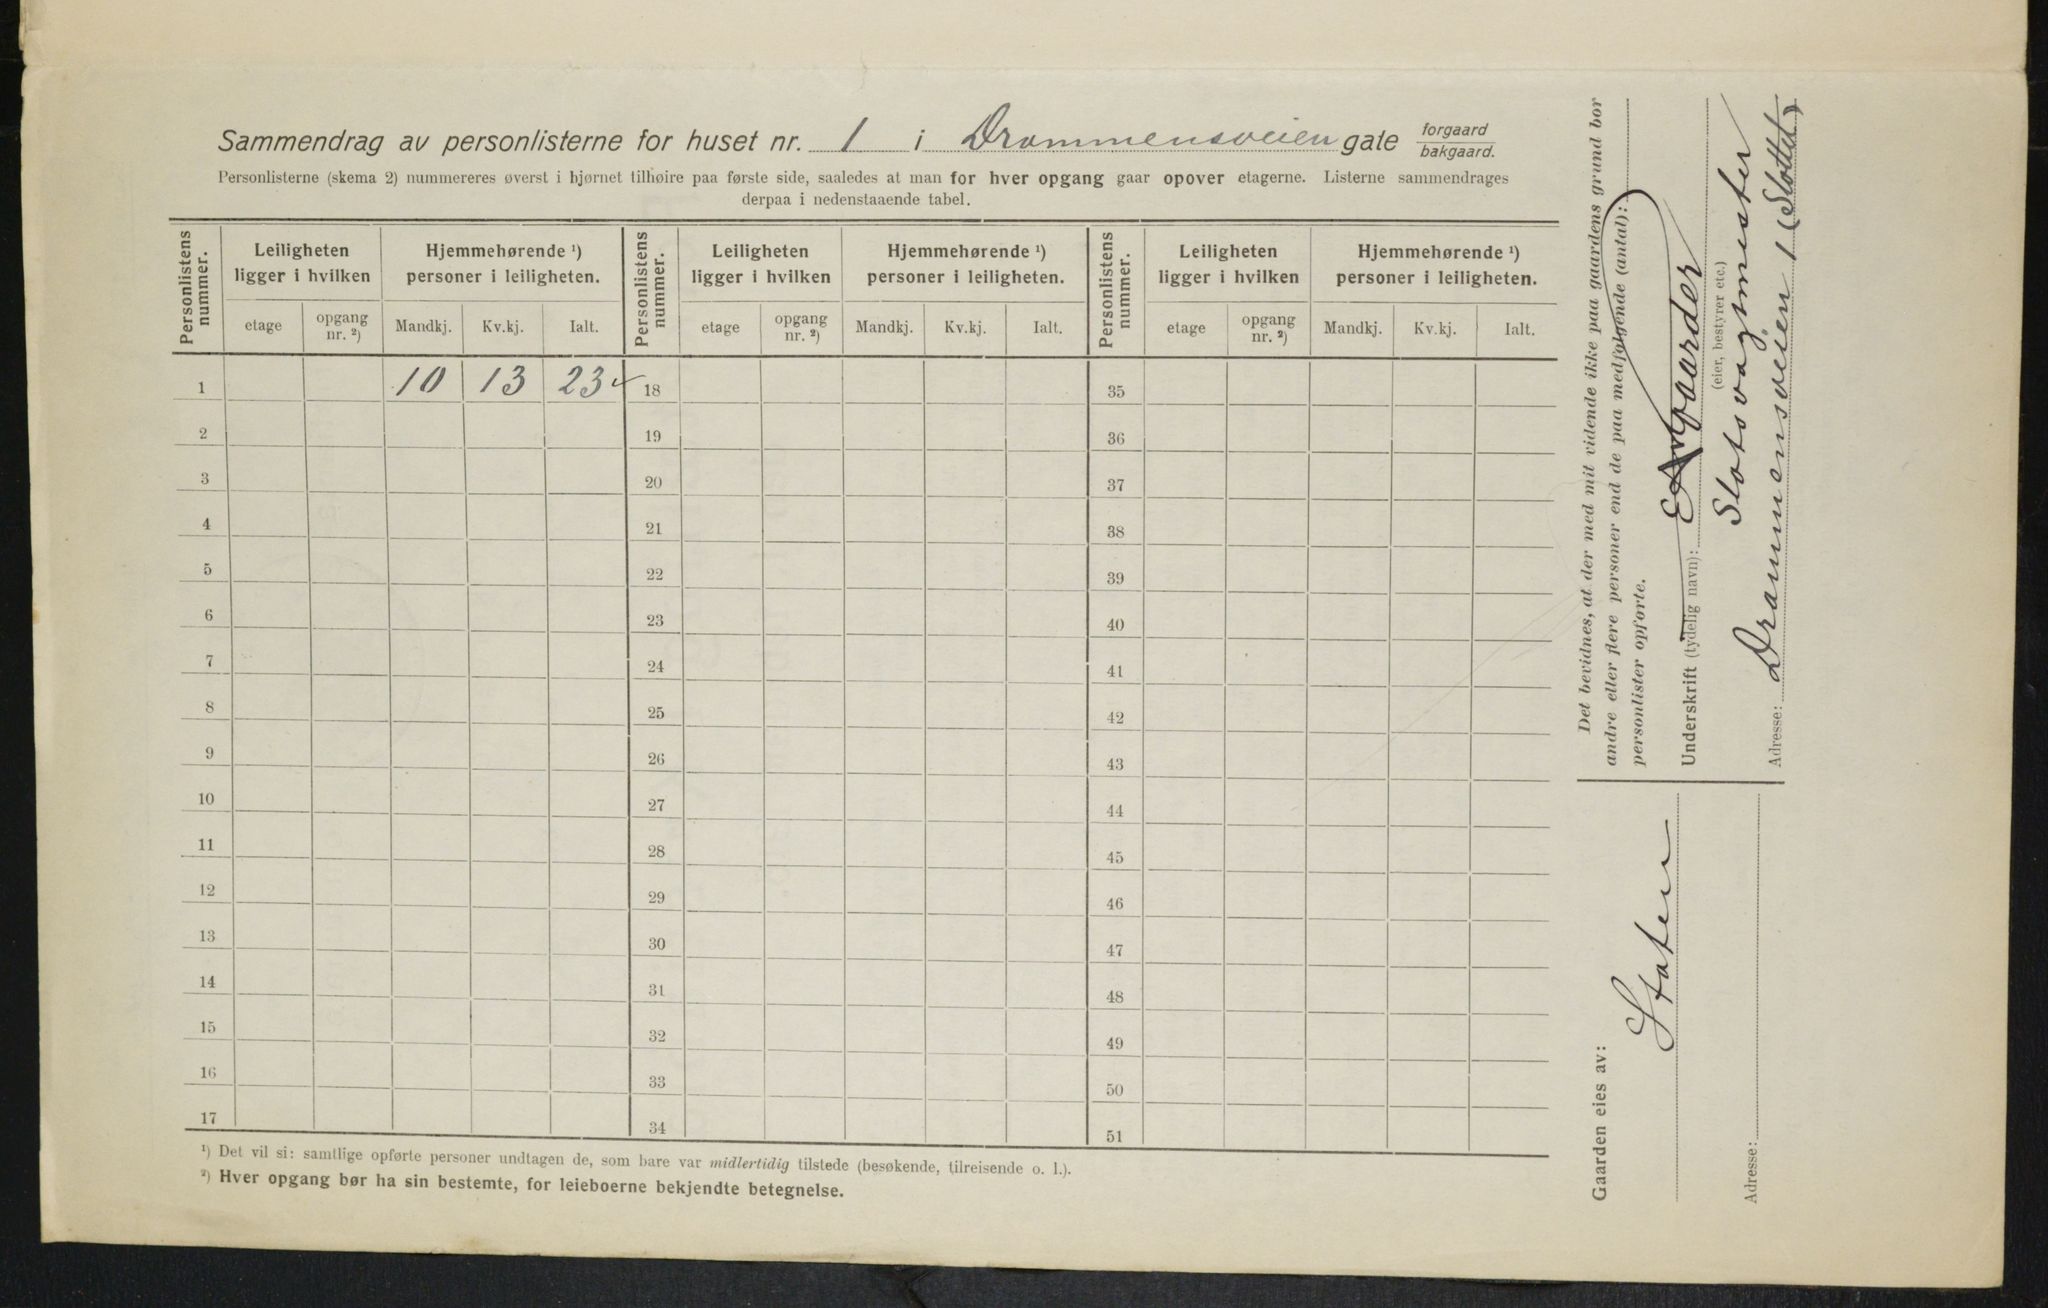 Sammendrag av personlisterne for huset nr. 1 i Drammensveien gate forgaard bakgaard.
Personlisterne (skema 2) nummereres øverst i hjørnet tilhøire paa første side, saaledes at man for hver opgang gaar opover etagerne. Listerne sammendrages
derpaa i nedenstaaende tabel.
Personlistens nummer. Leiligheten ligger i hvilken Hjemmehørende ¹) personer i leiligheten. Personlistens nummer. Leiligheten ligger i hvilken Hjemmehørende ¹) personer i leiligheten. Personlistens nummer. Leiligheten ligger i hvilken Hjemmehørende ¹) personer i leiligheten.
etage opgang nr. ²) Mandkj. Kv.kj. Ialt. etage opgang nr. ²) Mandkj. Kv.kj. Ialt. etage opgang nr. ²) Mandkj. Kv.kj. Ialt.
1 10 13 23 ✓ 18 35
2 19 36
3 20 37
4 21 38
5 22 39
6 23 40
7 24 41
8 25 42
9 26 43
10 27 44
11 28 45
12 29 46
13 30 47
14 31 48
15 32 49
16 33 50
17 34 51
¹) Det vil si: samtlige opførte personer undtagen de, som bare var midlertidig tilstede (besøkende, tilreisende o. l.).
²) Hver opgang bør ha sin bestemte, for leieboerne bekjendte betegnelse.
Det bevidnes, at der med mit vidende ikke paa gaardens grund bor
andre eller flere personer end de paa medfølgende (antal):
personlister opførte.
Underskrift (tydelig navn):
(eier, bestyrer etc.)
Slotsvagtmester
Adresse: Drammensveien 1 (Slottet)
Gaarden eies av:
Staten
Adresse: